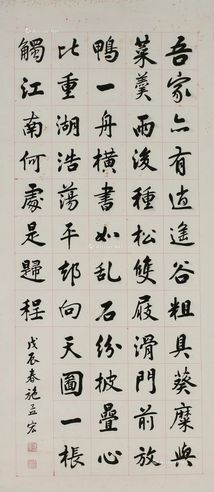 吾家亦有逍遙谷粗具葵糜與
菜羹雨後種松雙屐滑門前放
鴨一舟橫書如乱石紛披疊心
比重湖浩蕩平却向天圖一棖
觸江南何處是歸程
戊辰春施孟宏